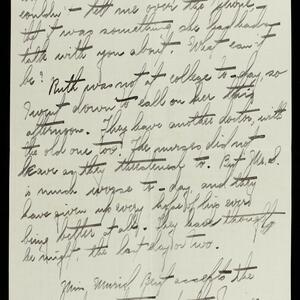 couldn't tell me over the phone,
but it was something she had had a
talk with you about. What can it
be? Ruth was not at college to-day, so
I went down to call on her this
afternoon. They have another doctor, with
the old one too. The nurses did not
leave as they threatened to. But Mr. S.
is much worse to-day, and they
have given up every hope of his ever
being better. They have thought
he might, the last day or two.
Miss Muriel accepts the